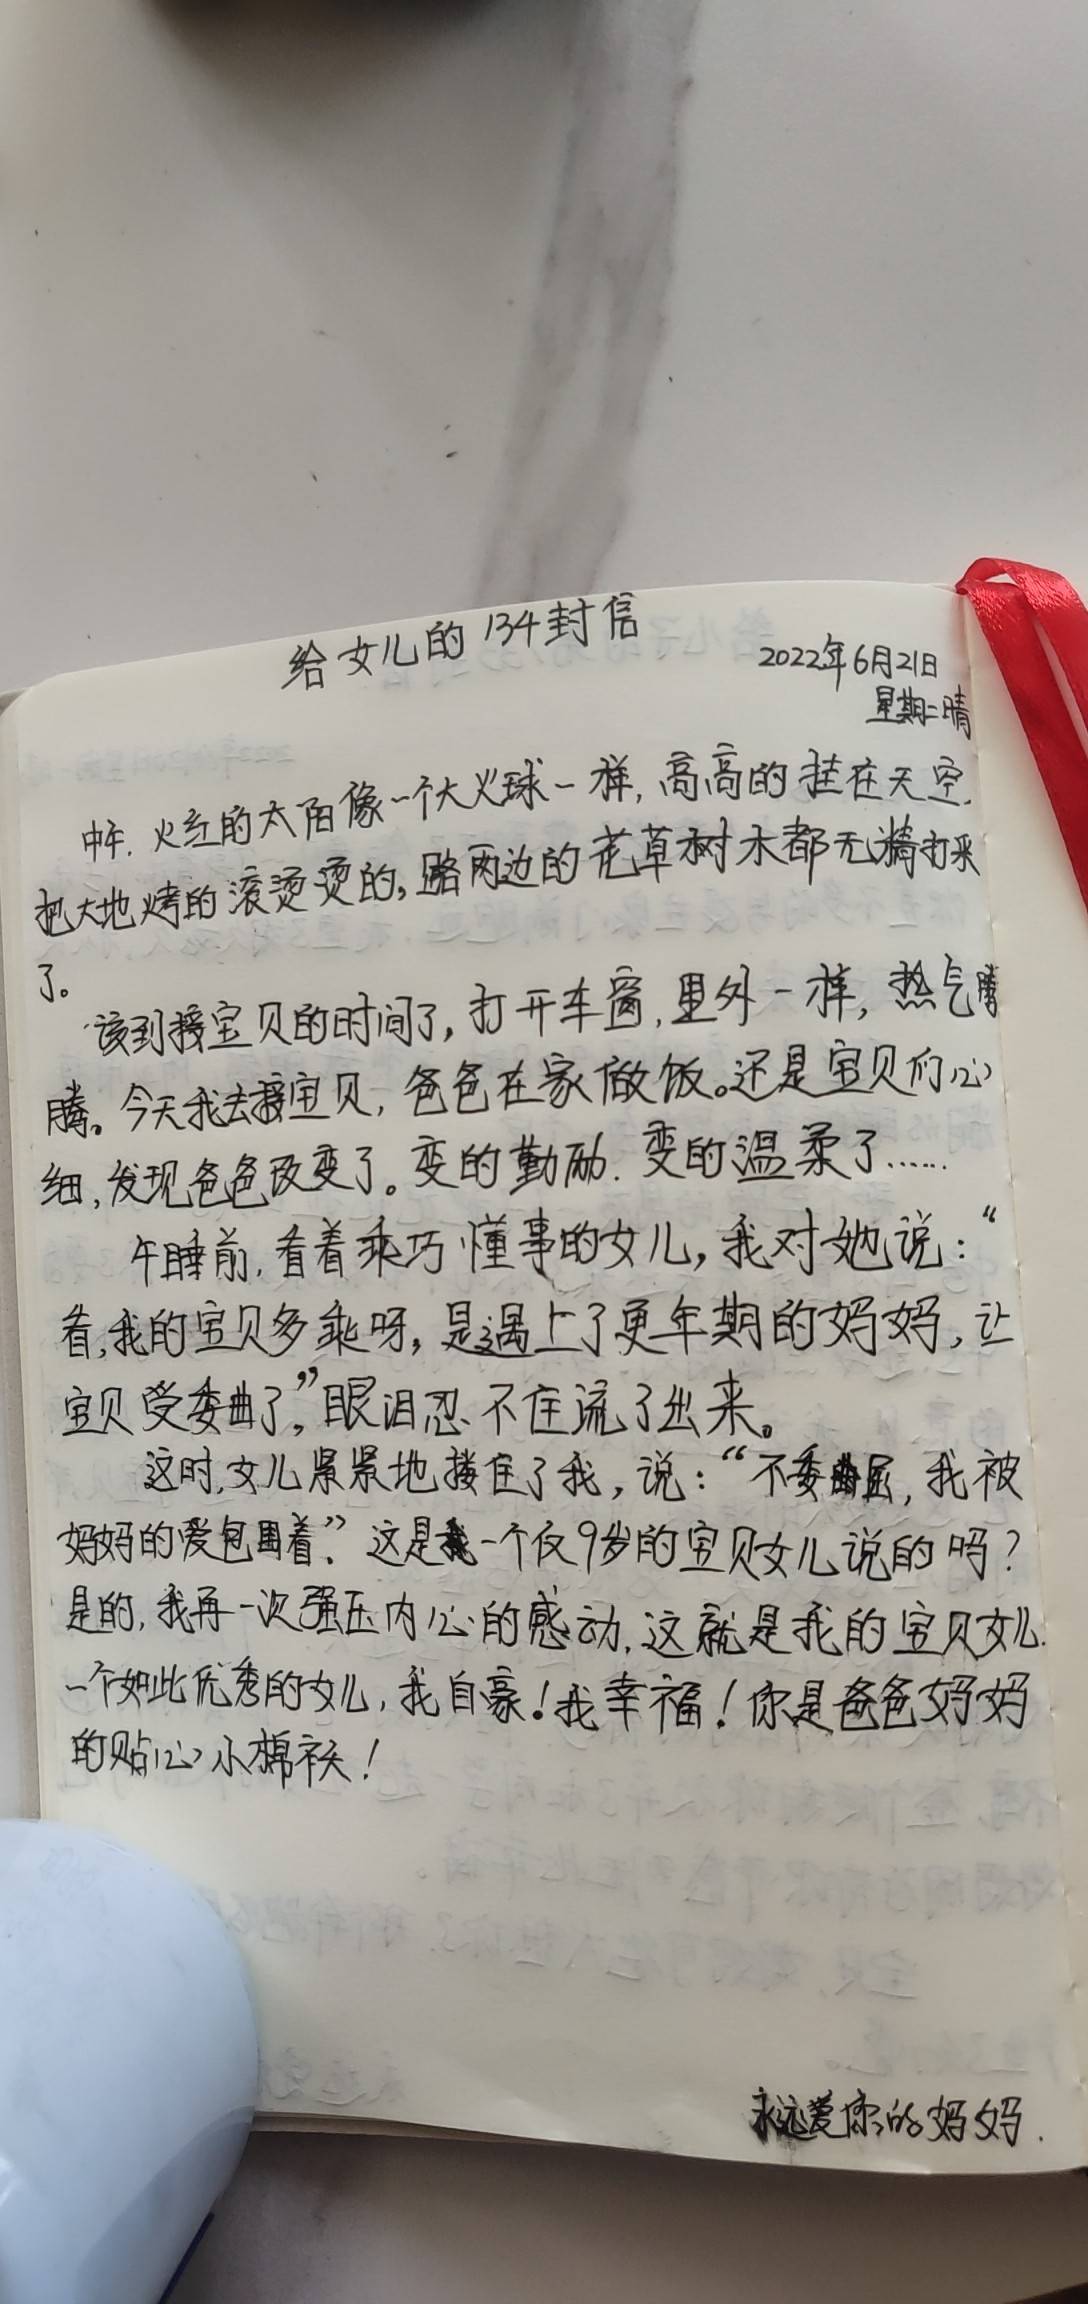 给女儿的134封信
2022年6月21日
星期二晴
中午.火红的太阳像一个大火球一样,高高的挂在天空.
把大地烤的滚烫烫的,路两边的花草树木都无精打采
了。
该到接宝贝的时间了,打开车窗,里外一样,热气腾
腾。今天我去接宝贝,爸爸在家做饭。还是宝贝们心
细,发现爸爸改变了。变的勤劢.变的温柔了……
午睡前,看着乖巧懂事的女儿,我对她说:“
看,我的宝贝多乖呀,是遇上了更年期的妈妈,让
宝贝受委曲了。”眼泪忍不住流了出来。
这时,女儿紧紧地搂住了我,说:“不委屈,我被
妈妈的爱包围着”。这是一个仅9岁的宝贝女儿说的吗?
是的,我再一次强压内心的感动,这就是我的宝贝女儿.
一个如此优秀的女儿,我自豪!我幸福!你是爸爸妈妈
的贴心小棉袄!
永远爱你的妈妈.